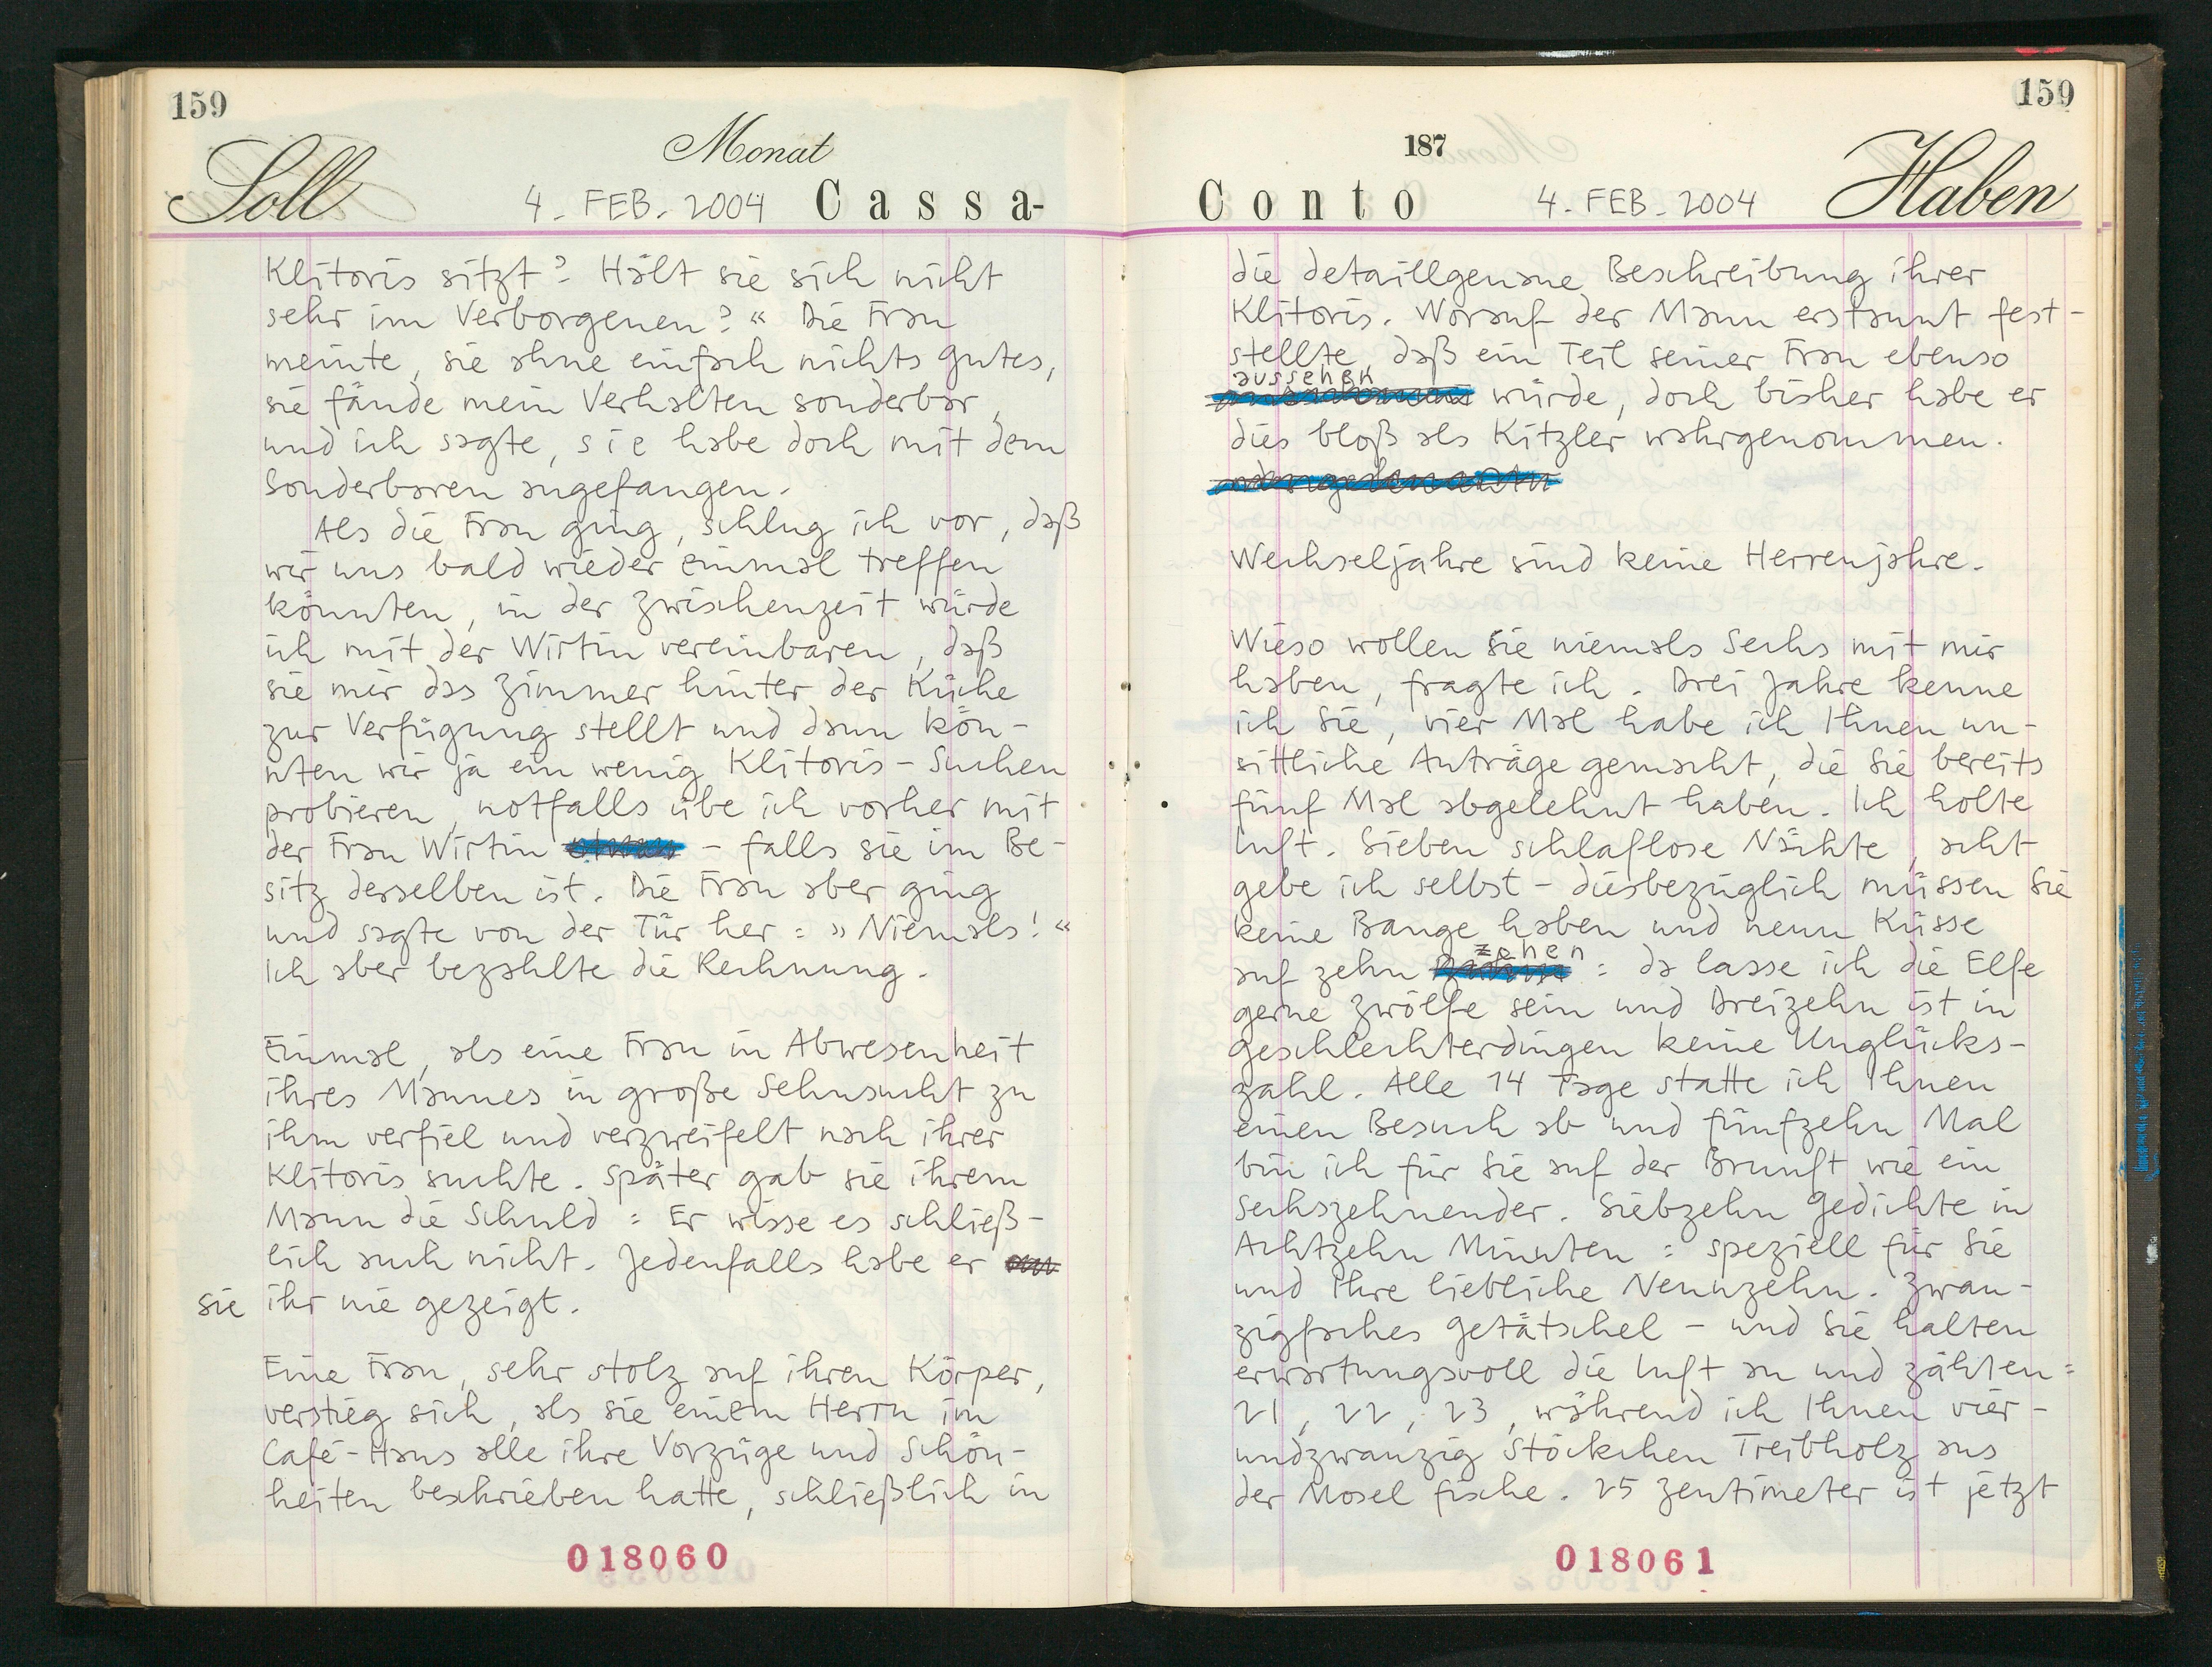 159
Soll
Monat
4. FEB. 2004 Cassa-
Klitoris sitzt? Hält sie sich nicht
sehr im Verborgenen?« Die Frau
meinte, sie ahne einfach nichts gutes,
sie fände mein Verhalten sonderbar,
und ich sagte, sie habe doch mit dem
Sonderbaren angefangen.
Als die Frau ging, schlug ich vor, daß
wir uns bald wieder einmal treffen
könnten, in der Zwischenzeit würde
ich mit der Wirtin vereinbaren, daß
sie mir das Zimmer hinter der Küche
zur Verfügung stellt und dann kön-
nten wir ja ein wenig Klitoris-Suchen
probieren, notfalls übe ich vorher mit
der Frau Wirtin – falls sie im Be-
sitz derselben ist. Die Frau aber ging
und sagte von der Tür her: »Niemals!«
Ich aber bezahlte die Rechnung.
Einmal, als eine Frau in Abwesenheit
ihres Mannes in große Sehnsucht zu
ihm verfiel und verzweifelt nach ihrer
Klitoris suchte. Später gab sie ihrem
Mann die Schuld: Er wisse es schließ-
lich auch nicht. Jedenfalls habe er
sie ihr nie gezeigt.
Eine Frau, sehr stolz auf ihren Körper,
verstieg sich, als sie einem Herrn im
Café-Haus alle ihre Vorzüge und Schön-
heiten beschrieben hatte, schließlich in
018060
159
187
Conto 4. FEB. 2004 Haben
die detaillgenaue Beschreibung ihrer
Klitoris. Worauf der Mann erstaunt fest-
stellte, daß ein Teil seiner Frau ebenso
aussehen würde, doch bisher habe er
dies bloß als Kitzler wahrgenommen.
Wechseljahre sind keine Herrenjahre.
Wieso wollen Sie niemals Sechs mit mir
haben, fragte ich. Drei Jahre kenne
ich Sie, vier Mal habe ich Ihnen un-
sittliche Anträge gemacht, die Sie bereits
fünf Mal abgelehnt haben. Ich holte
Luft. Sieben schlaflose Nächte, acht
gebe ich selbst – diesbezüglich müssen Sie
keine Bange haben und neun Küsse
auf zehn zehen: da lasse ich die Elfe
gerne Zwölfe sein und Dreizehn ist in
Geschlechterdingen keine Unglücks-
zahl. Alle 14 Tage statte ich Ihnen
einen Besuch ab und fünfzehn Mal
bin ich für Sie auf der Brunft wie ein
Sechszehnender. Siebzehn Gedichte in
Achtzehn Minuten: speziell für Sie
und Ihre liebliche Neunzehn. Zwan-
zigfaches Getätschel – und Sie halten
erwartungsvoll die Luft an und zählen:
21, 22, 23, während ich Ihnen vier-
undzwanzig Stöckchen Treibholz aus
der Mosel fische. 25 Zentimeter ist jetzt
018061